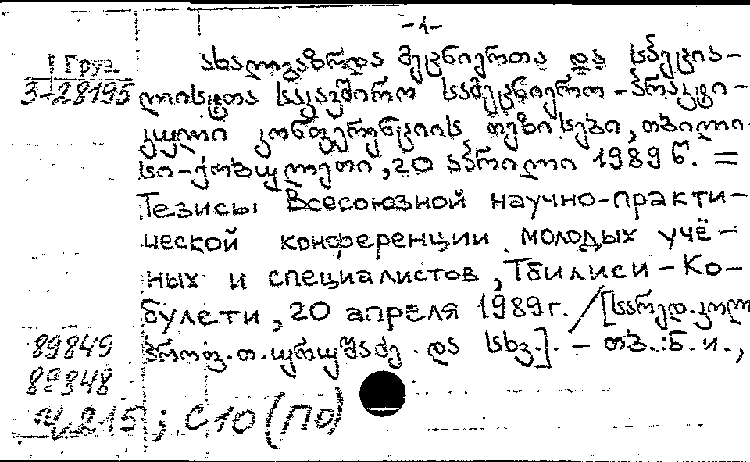 -1-
1 Груз
3-28195
ახალგაზრდა მეცნიერთა და სპეცია-
ლისტთა საკავშირო სამეცნიერო-პრაქტი-
კული კონფერენციის თეზისები, თბილი-
სი-ქობულეთი, 20 აპრილი 1989 წ. =
Тезисы Всесоюзной научно-практи-
ческой конференции молодых учё-
ных и специалистов, Тбилиси-Ко-
булети, 20 апреля 1989г. / [სარედ. კოლ.
89849
პროფ. თ. ყურუშაძე და სხვ.]. - თბ.: Б.и.,
82848
4215; С10 (ПО)